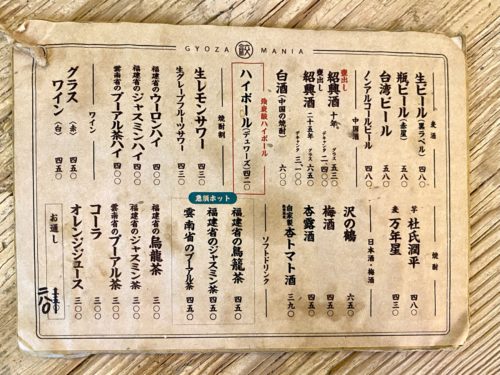 GYOZA 餃 MANIA
麦酒
生ビール(黒ラベル) 四八〇
瓶ビール(赤星)
台湾ビール 五八〇
ノンアルコールビール 四八〇
中国酒
壷出し 紹興酒 十年 グラス 五三〇
デキャンタ 二一〇〇
壷出し 紹興酒 二十五年 グラス 六五〇
デキャンタ 三一〇〇
白酒(中国の焼酎) 六〇〇
強炭酸ハイボール
ハイボール(デュワーズ)四二〇
焼酎割
生レモンサワー 四三〇
生グレープフルーツサワー 四三〇
福建省のウーロンハイ 四三〇
福建省のジャスミンハイ 四〇〇
雲南省のプーアル茶ハイ 四〇〇
ワイン
グラスワイン (赤) 四五〇
(白) 四五〇
焼酎
芋 杜氏潤平 四八〇
麦 万年星 四八〇
日本酒・梅酒
沢の鶴 六五〇
梅酒 四五〇
杏露酒 四五〇
杏トマト酒 三九〇
ソフトドリンク
急須ホット
福建省の烏龍茶 四五〇
福建省のジャスミン茶 四五〇
雲南省のプーアル茶 四五〇
福建省の烏龍茶 三〇〇
福建省のジャスミン茶 三〇〇
雲南省のプーアル茶 三〇〇
コーラ 三〇〇
オレンジジュース 三〇〇
お通し
三八〇